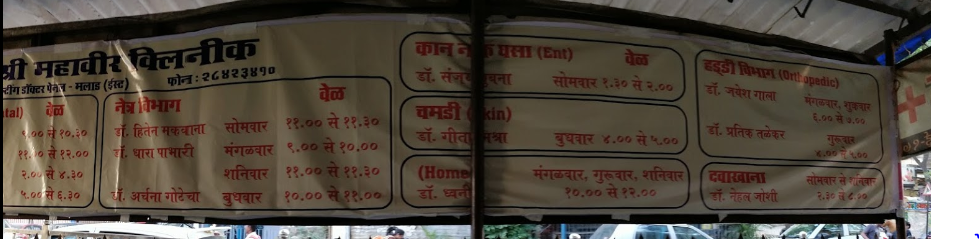 श्री महावीर क्लिनीक
फोन : २८४२३४१०
डॉक्टर पॅनल - मलाड (ईस्ट)
tal) वेळ
९.०० से १०.३०
११.०० से १२.००
२.०० से ४.३०
५.०० से ६.३०
नेत्र विभाग वेळ
डॉ. हितेन मकवाना सोमवार ११.०० से ११.३०
डॉ. धारा पाभारी मंगळवार ९.०० से १०.००
शनिवार ११.०० से ११.३०
डॉ. अर्चना गोटेचा बुधवार १०.०० से ११.००
कान घसा (Ent) वेळ
डॉ. सोमवार १.३० से २.००
चमडी
डॉ. गीता बुधवार ४.०० से ५.००
(Home मंगळवार, गुरूवार, शनिवार
डॉ. १०.०० से १२.००
हड्डी विभाग (Orthopedic)
डॉ. जयेश गाला मंगळवार, शुक्रवार
६.०० से ७.००
डॉ. प्रतिक तळेकर गुरूवार
४.०० से ५.००
दवाखाना सोमवार से शनिवार
डॉ. नेहल जोशी २.३० से ८.००